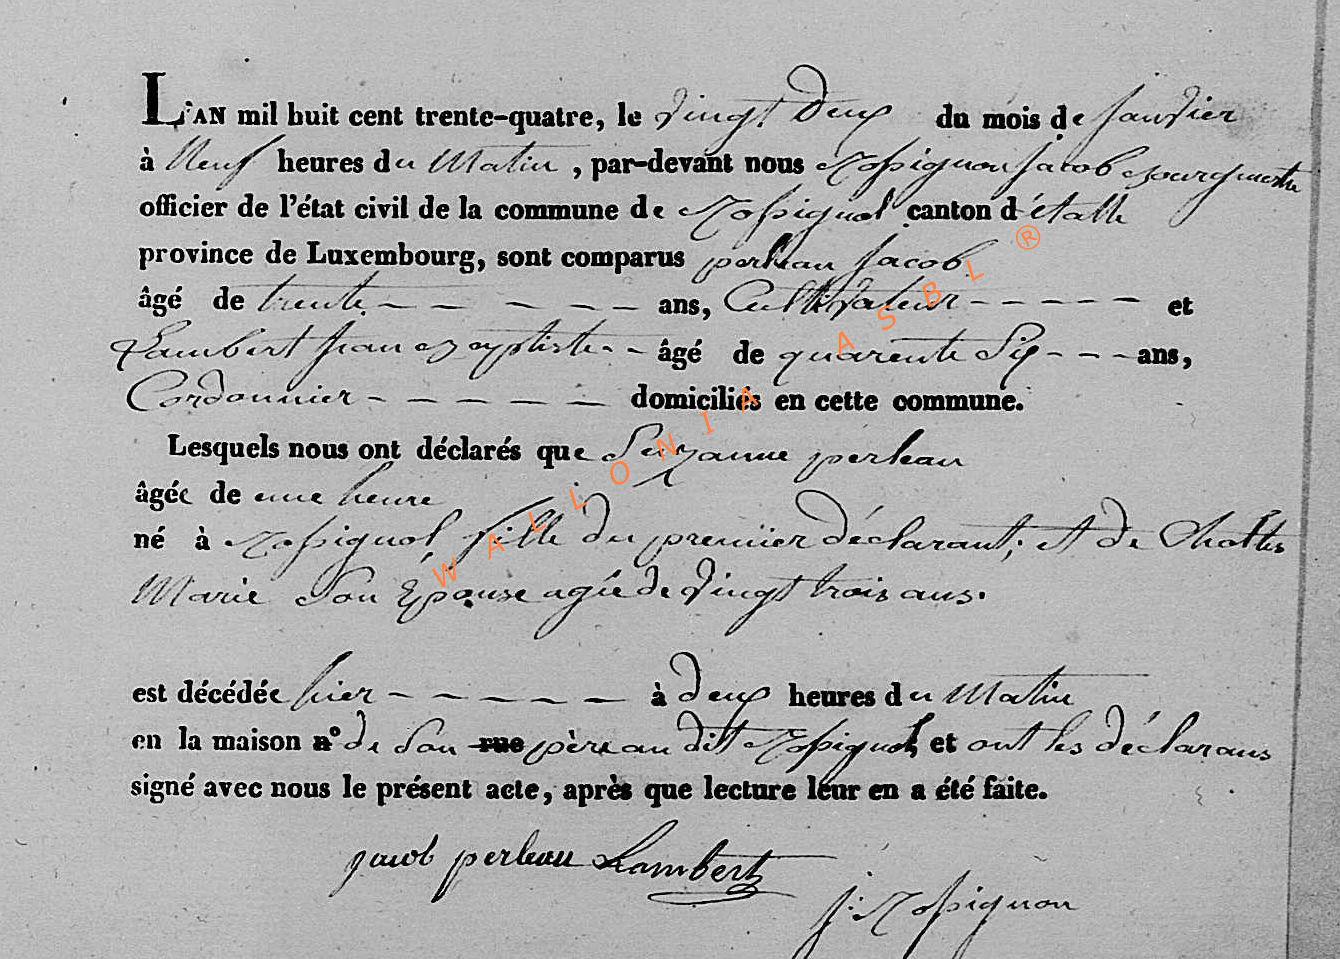 L'AN mil huit cent trente-quatre, le vingt deux du mois de janvier
à Neuf heures du Matin, par-devant nous Rossignon Jacob Bourgmestre
officier de l'état civil de la commune de Rossignol canton d'étalle
province de Luxembourg, sont comparus perleau Jacob
âgé de trente ans, Cultivateur et
Lambert Jean Baptiste âgé de quarente Six ans,
Cordonnier domiciliés en cette commune.
Lesquels nous ont déclarés que Suzanne perleau
âgée de une heure
né à Rossignol, fille du premier déclarant; et de
Marie Son Epouse agée de vingt trois ans.
est décédée hier à deux heures du Matin
en la maison n° de Son rue père au dit Rossignol, et ont les déclarans
signé avec nous le présent acte, après que lecture leur en a été faite.
jacob perleau Lambert
j: Rossignon
WALLONIA ASBL ®